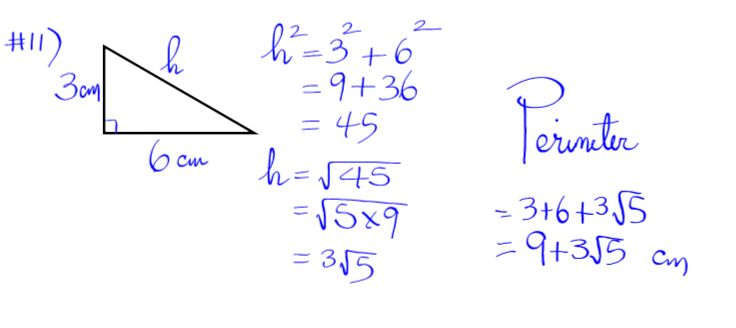 #11)
h
3cm
6 cm
h² = 3² + 6²
= 9 + 36
= 45
h = √45
= √5×9
= 3√5
Perimeter
= 3+6+3√5
= 9+3√5 cm